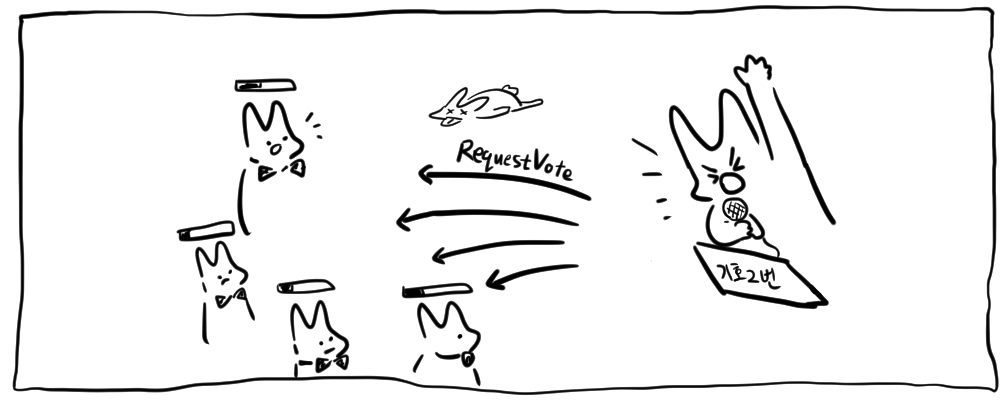 RequestVote
기호2번